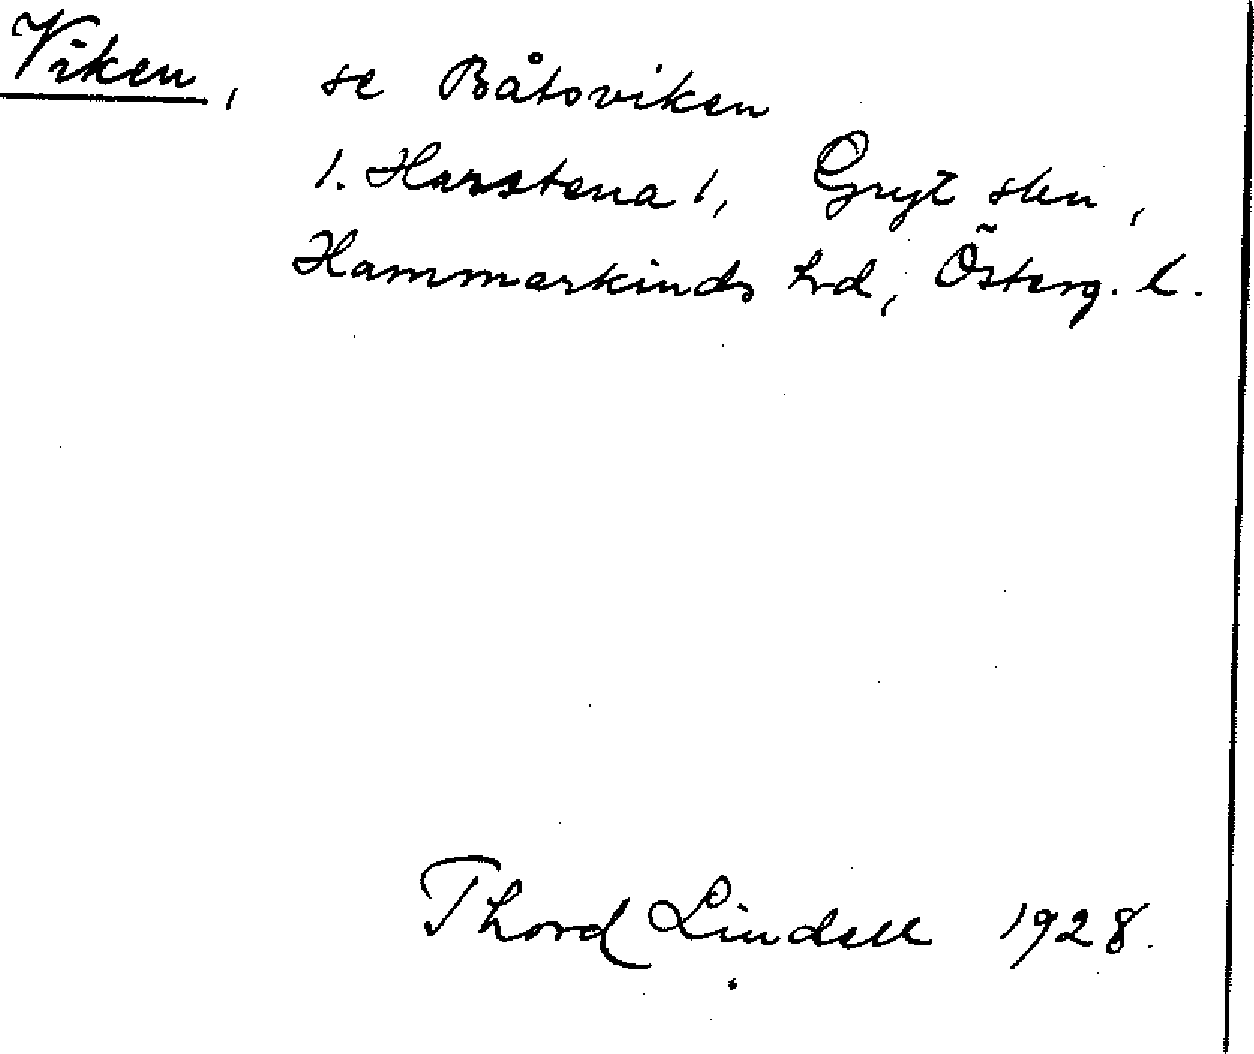 Viken, se Båtsviken
1. Harstena 1, Gryt skn,
Hammarkinds hrd, Österg. l.
Thord Lindell 1928.